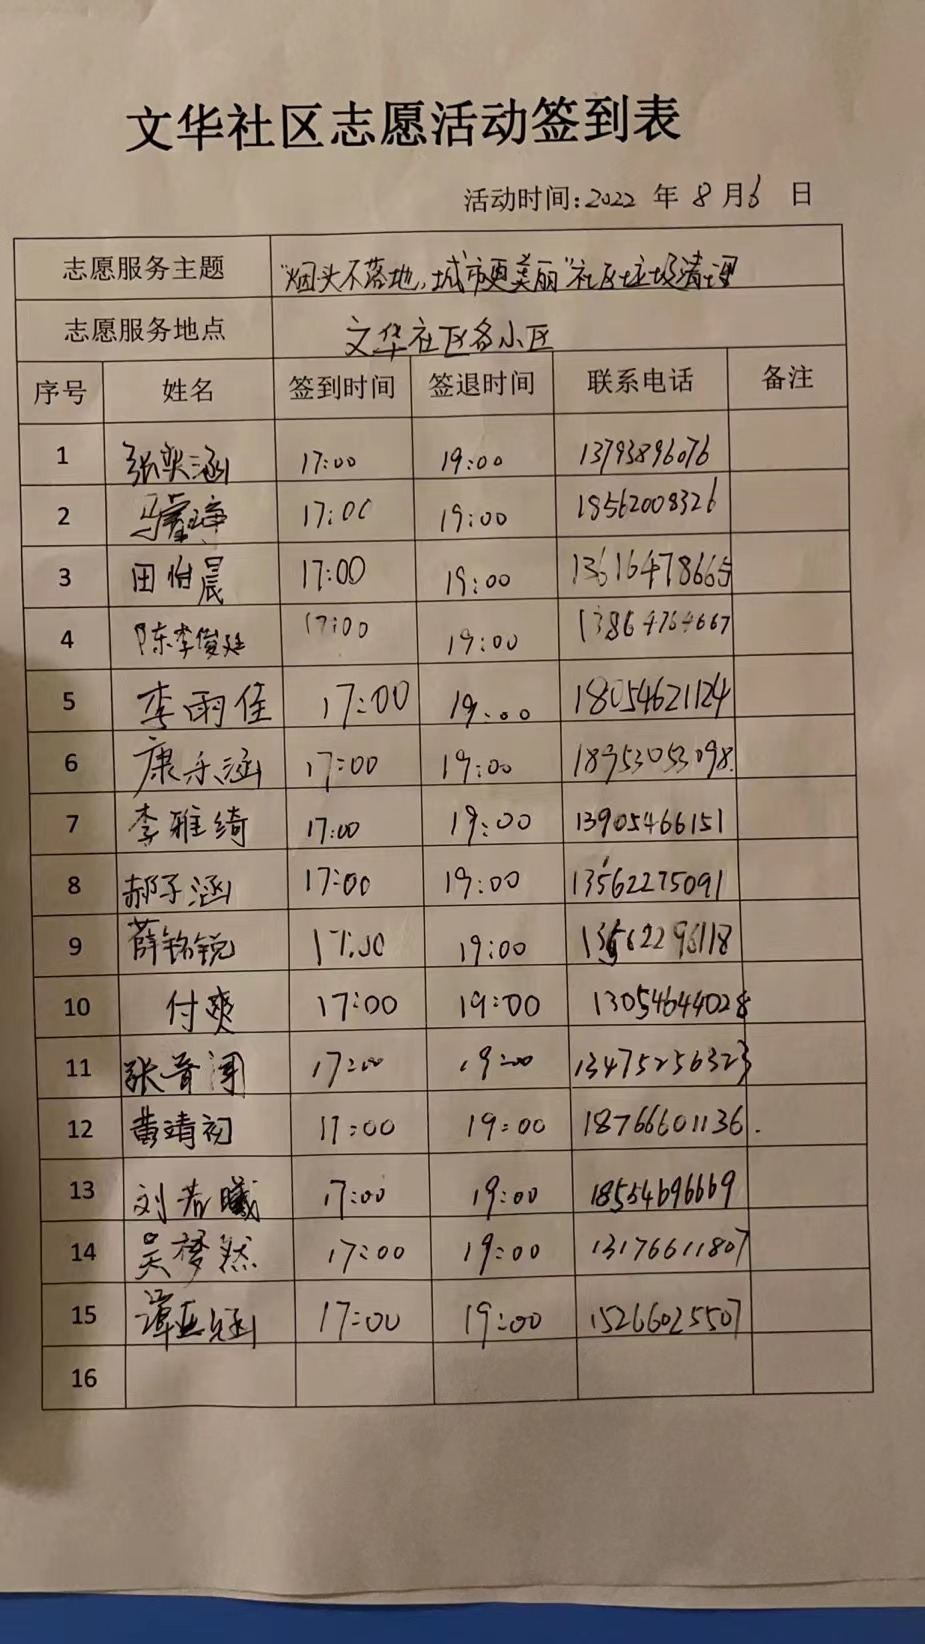 文华社区志愿活动签到表
活动时间:2022 年 8 月 6 日
志愿服务主题 "烟头不落地,城市更美丽"社区垃圾清理
志愿服务地点 文华社区各小区
序号 姓名 签到时间 签退时间 联系电话 备注
1 张奕涵 17:00 19:00 13793896076
2 马睿琤 17:00 19:00 18562008326
3 田怡晨 17:00 19:00 13616478665
4 陈李俊廷 17:00 19:00 13864764667
5 李雨佳 17:00 19:00 18054621124
6 康乐涵 17:00 19:00 18953053098.
7 李雅绮 17:00 19:00 13905466151
8 郝子涵 17:00 19:00 13562275091
9 薛铭锐 17:00 19:00 13562296118
10 付爽 17:00 19:00 13054644028
11 张 17:00 19:00 13475256323
12 黄靖初 17:00 19:00 18766601136.
13 刘若曦 17:00 19:00 18554696669
14 吴梦然 17:00 19:00 13176611807
15 谭亚涵 17:00 19:00 15266025507
16